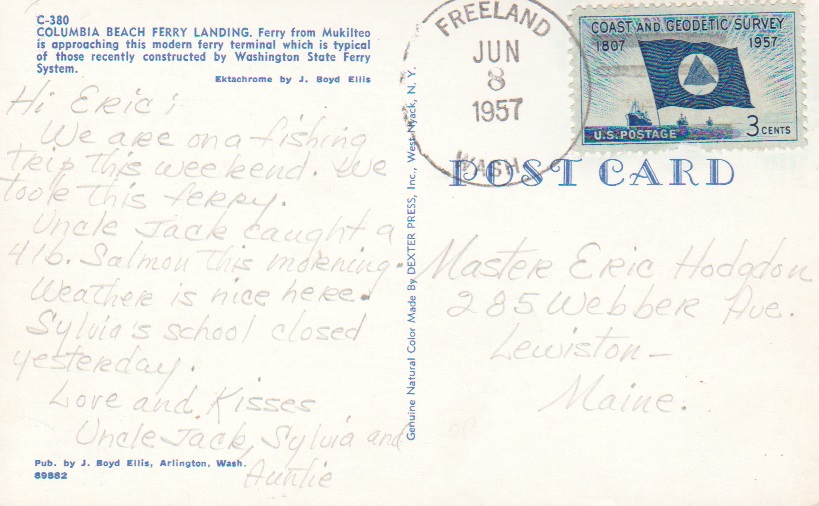 C-380
COLUMBIA BEACH FERRY LANDING. Ferry from Mukilteo
is approaching this modern ferry terminal which is typical
of those recently constructed by Washington State Ferry
System.
Ektachrome by J. Boyd Ellis
Hi Eric:
We are on a fishing
trip this weekend. We
took this ferry.
Uncle Jack caught a
4lb. Salmon this morning.
Weather is nice here.
Sylvia's school closed
yesterday.
Love and Kisses
Uncle Jack, Sylvia and
Auntie
Pub. by J. Boyd Ellis, Arlington, Wash.
89882
Genuine Natural Color Made By DEXTER PRESS, Inc., West Nyack, N. Y.
FREELAND
JUN
8
1957
WASH.
COAST AND GEODETIC SURVEY
1807 1957
U.S. POSTAGE 3 CENTS
POST CARD
Master Eric Hodgdon
285 Webber Ave.
Lewiston-
Maine.